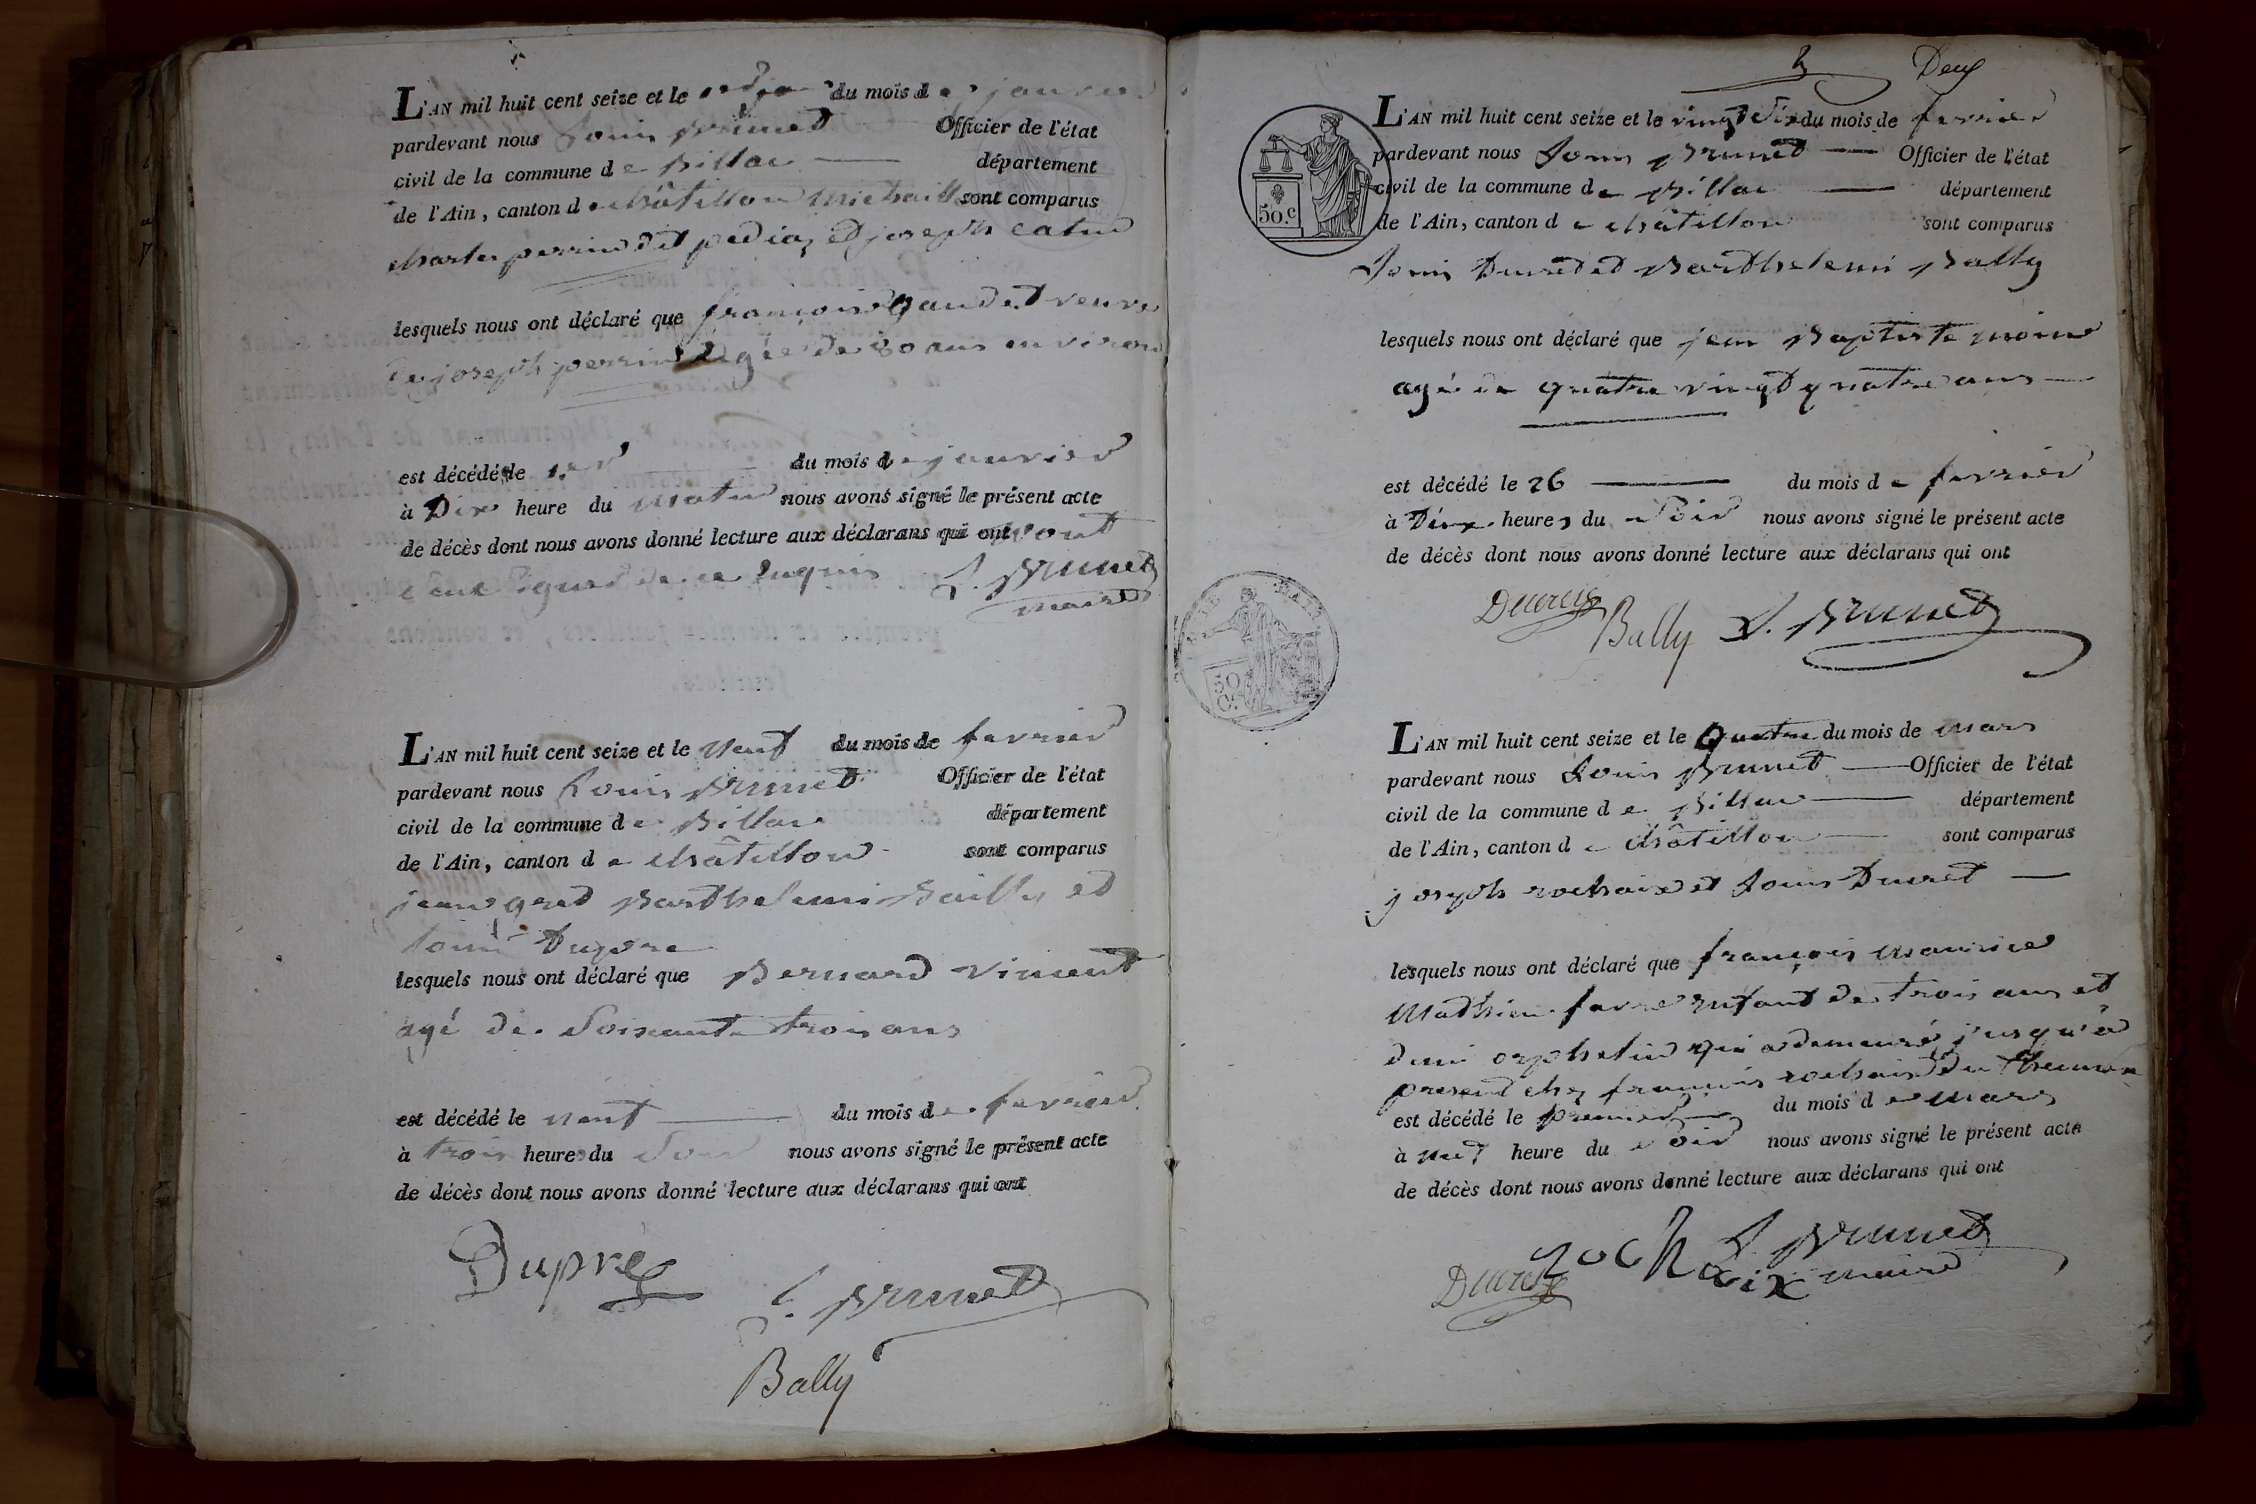 L'AN mil huit cent seize et le du mois de janvier
pardevant nous Louis Brunet Officier de l'état
civil de la commune de Billac département
de l'Ain, canton de châtillon michaille sont comparus
charles perrin dit pediaz et joseph
lesquels nous ont déclaré que françoise gaudet veuve
de joseph perrin agée de 80 ans environ
est décédé le 1.er du mois de janvier
à Dix heure du matin nous avons signé le présent acte
de décès dont nous avons donné lecture aux déclarans qui ont
signer de ce requis L. Brunet
maire
L'AN mil huit cent seize et le neuf du mois de fevrier
pardevant nous Louis Brunet Officier de l'état
civil de la commune de Billac département
de l'Ain, canton de châtillon sont comparus
jean Barthelemi Bailly et
Dupre
lesquels nous ont déclaré que Bernard Vincent
agé de Soixante trois ans
est décédé le neuf du mois de fevrier
à trois heures du Soir nous avons signé le présent acte
de décès dont nous avons donné lecture aux déclarans qui ont
Dupré
L. Brunet
Bally
2 Deux
L'AN mil huit cent seize et le vingt Six du mois de fevrier
pardevant nous Louis Brunet Officier de l'état
civil de la commune de Billac département
50.c
de l'Ain, canton de châtillon sont comparus
Louis Ducret et Barthelemi Bally
lesquels nous ont déclaré que jean Baptiste moine
agé de quatre vingt quatre ans
est décédé le 26 du mois de fevrier
à heures du Soir nous avons signé le présent acte
de décès dont nous avons donné lecture aux déclarans qui ont
Ducret Bally L. Brunet
50
C.
L'AN mil huit cent seize et le Quatre du mois de mars
pardevant nous Louis Brunet Officier de l'état
civil de la commune de Billac département
de l'Ain, canton de châtillon sont comparus
joseph rochaix et Louis Ducret
lesquels nous ont déclaré que françois maurice
Mathieu favre enfant de trois ans et
demi orphelin qui a demeuré jusqu'a
present chez françois rochaix du
est décédé le premier du mois de mars
à heure du Soir nous avons signé le présent acte
de décès dont nous avons donné lecture aux déclarans qui ont
Ducret rochaix L. Brunet
maire